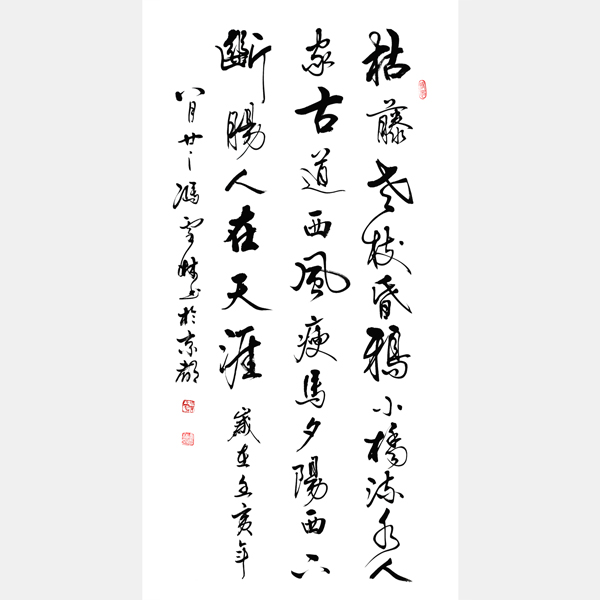 枯藤老枝昏鴉小橋流水人
家古道西風瘦馬夕陽西下
斷腸人在天涯 歲在亥年
八月廿一馮雪書於京都